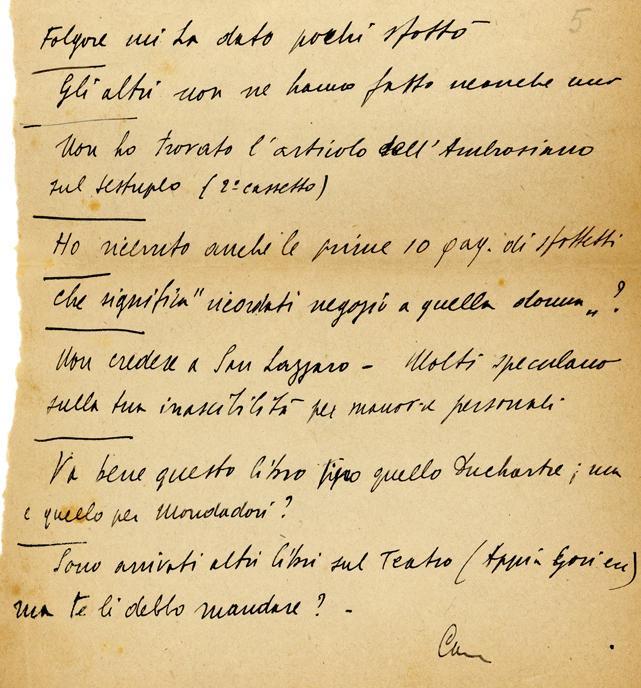 5
Folgore mi ha dato pochi sfottò
Gli altri non ne hanno fatto neanche uno
Non ho trovato l'articolo dell'Ambrosiano
sul sestuplo (2º cassetto)
Ho ricevuto anche le prime 10 pag. di sfottetti
Che significa "ricordati negozio a quella donna„?
Non credere a San Lazzaro - Molti speculano
sulla tua irascibilità per manovre personali
Va bene questo libro tipo quello Duchartre; ma
e quello per Mondadori?
Sono arrivati altri libri sul Teatro (Appia
ma te li debbo mandare? -